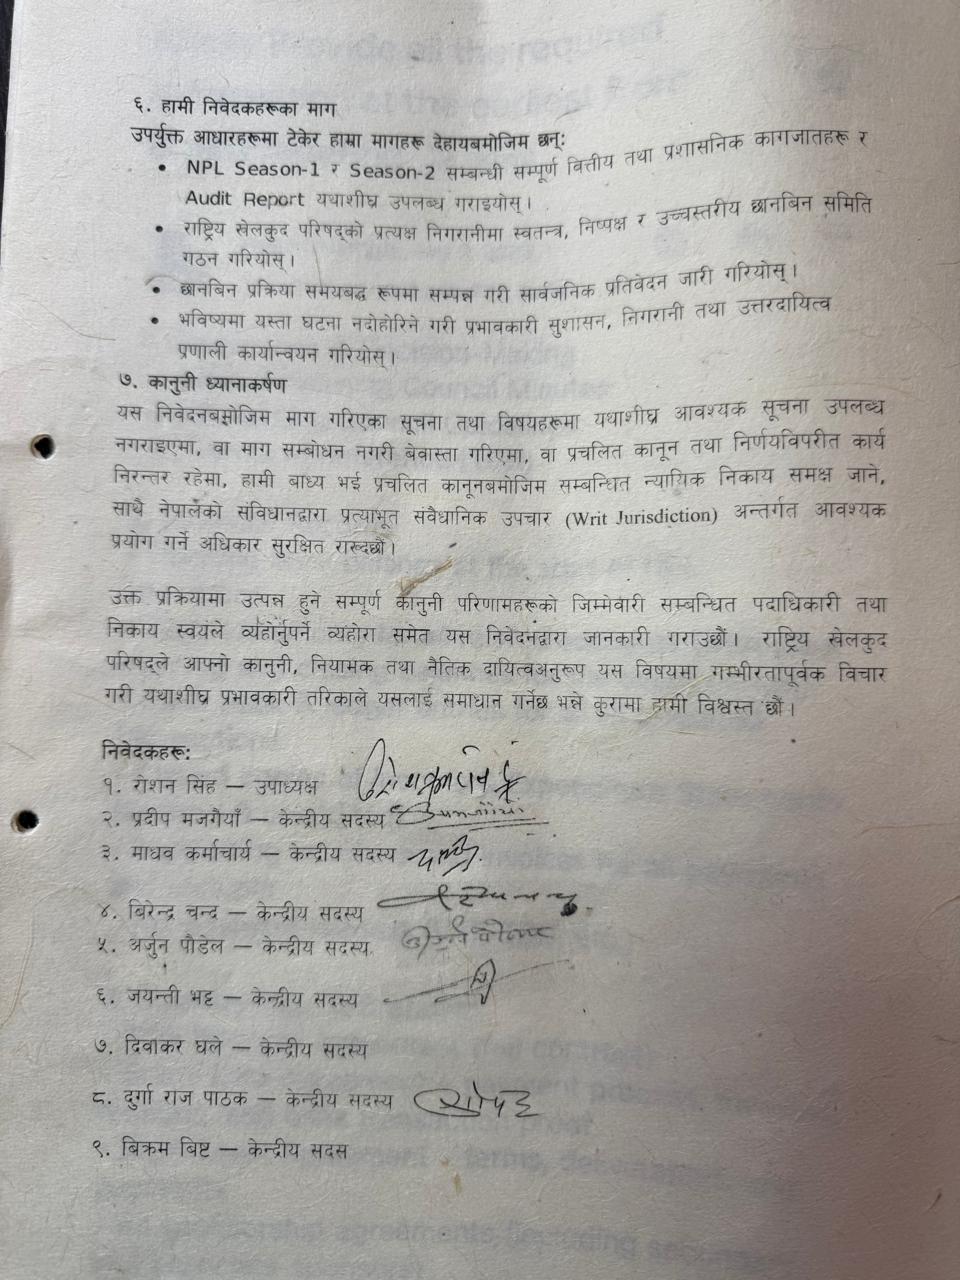 ६. हामी निवेदकहरूका माग
उपर्युक्त आधारहरूमा टेकेर हाम्रा मागहरू देहायबमोजिम छन्:
• NPL Season-1 र Season-2 सम्बन्धी सम्पूर्ण वित्तीय तथा प्रशासनिक कागजातहरू र
Audit Report यथाशीघ्र उपलब्ध गराइयोस्।
• राष्ट्रिय खेलकुद परिषद्को प्रत्यक्ष निगरानीमा स्वतन्त्र, निष्पक्ष र उच्चस्तरीय छानबिन समिति
गठन गरियोस्।
• छानबिन प्रक्रिया समयबद्ध रूपमा सम्पन्न गरी सार्वजनिक प्रतिवेदन जारी गरियोस्।
• भविष्यमा यस्ता घटना नदोहोरिने गरी प्रभावकारी सुशासन, निगरानी तथा उत्तरदायित्व
प्रणाली कार्यान्वयन गरियोस्।
७. कानुनी ध्यानाकर्षण
यस निवेदनबमोजिम माग गरिएका सूचना तथा विषयहरूमा यथाशीघ्र आवश्यक सूचना उपलब्ध
नगराइएमा, वा माग सम्बोधन नगरी बेवास्ता गरिएमा, वा प्रचलित कानून तथा निर्णयविपरीत कार्य
निरन्तर रहेमा, हामी बाध्य भई प्रचलित कानूनबमोजिम सम्बन्धित न्यायिक निकाय समक्ष जाने,
साथै नेपालको संविधानद्वारा प्रत्याभूत संवैधानिक उपचार (Writ Jurisdiction) अन्तर्गत आवश्यक
प्रयोग गर्ने अधिकार सुरक्षित राख्दछौं।
उक्त प्रक्रियामा उत्पन्न हुने सम्पूर्ण कानुनी परिणामहरूको जिम्मेवारी सम्बन्धित पदाधिकारी तथा
निकाय स्वयंले व्यहोर्नुपर्ने व्यहोरा समेत यस निवेदनद्वारा जानकारी गराउछौं। राष्ट्रिय खेलकुद
परिषद्ले आफ्नो कानुनी, नियामक तथा नैतिक दायित्वअनुरूप यस विषयमा गम्भीरतापूर्वक विचार
गरी यथाशीघ्र प्रभावकारी तरिकाले यसलाई समाधान गर्नेछ भन्ने कुरामा हामी विश्वस्त छौं।
निवेदकहरू:
१. रोशन सिंह – उपाध्यक्ष
२. प्रदीप मजगैयाँ – केन्द्रीय सदस्य
३. माधव कर्माचार्य – केन्द्रीय सदस्य
४. बिरेन्द्र चन्द – केन्द्रीय सदस्य
५. अर्जुन पौडेल – केन्द्रीय सदस्य
६. जयन्ती भट्ट – केन्द्रीय सदस्य
७. दिवाकर घले – केन्द्रीय सदस्य
८. दुर्गा राज पाठक – केन्द्रीय सदस्य
९. बिक्रम बिष्ट – केन्द्रीय सदस